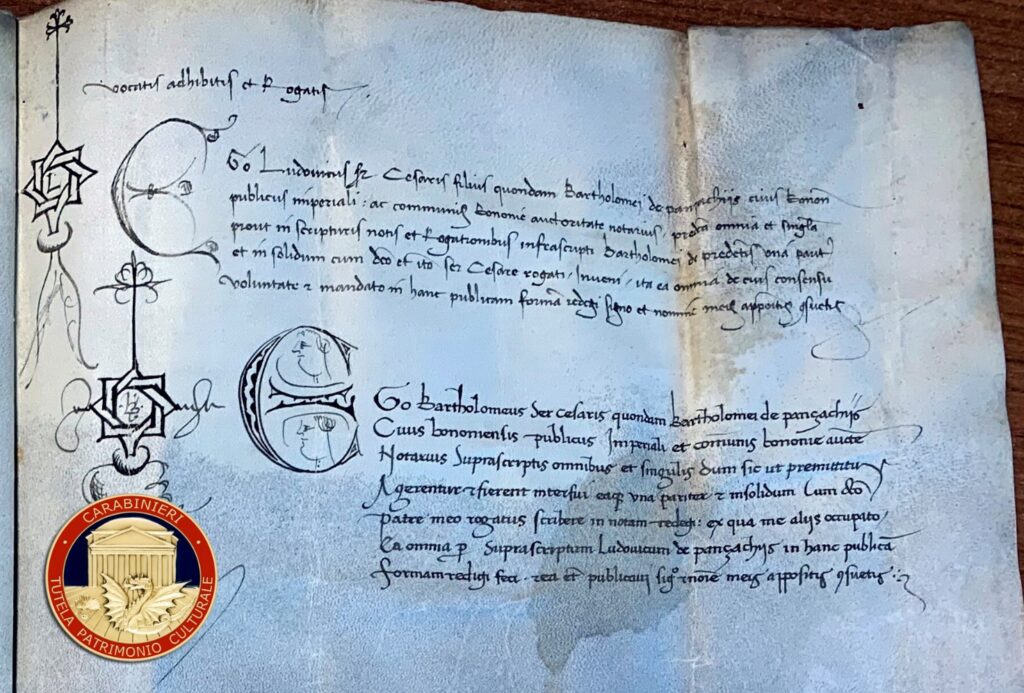 vocatis adhibitis et Rogatis
EGo Ludovicus Cesaris filius quondam Bartholomei de panzachijs civis bonon
publicus imperiali ac communis bononie auctoritate notarius omnia et singla
prout in scripturis notis et Rogationibus infrascripti Bartholomei una
et in solidum cum dco et ser Cesare rogati inveni ita ea omnia de eius consensu
voluntate et mandato in hanc publicam forma redegi signo et nomine meis appositis
EGo Bartholomeus Ser Cesaris quondam Bartholomei de panzachijs
Civis bononiensis publicus Imperiali et comunis bononie aucte
Notarius Suprascriptis omnibus et singulis dum sic ut premittitur
Agerentur et fierent interfui eaque una pariter et insolidum Cum dco
patre meo rogatus scribere in notam redegi: ex qua me alijs occupato
Ea omnia p Suprascriptum Ludovicum de panzachijs in hanc publica
formam redigi feci publicavi meis appositis
CARABINIERI
TUTELA PATRIMONIO CULTURALE